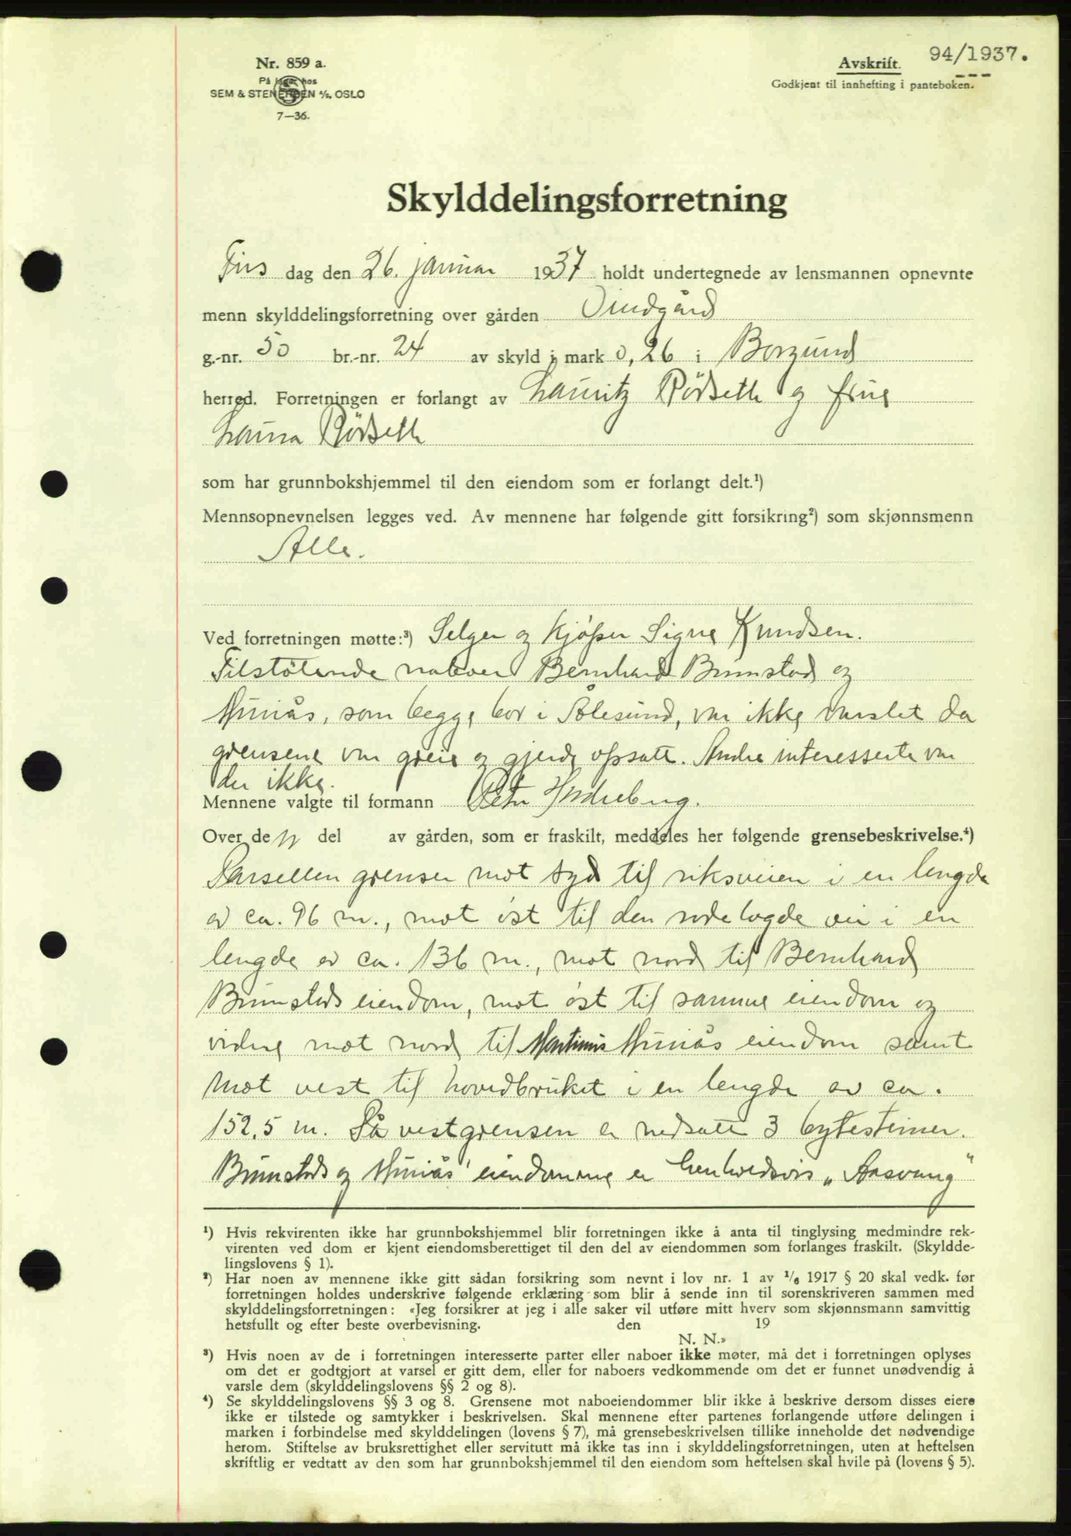 Nr. 859 a.
På lager hos
SEM & STENERSEN A/S. OSLO
7—36.
Avskrift.
94/1937.
Godkjent til innhefting i panteboken.
Skylddelingsforretning
Tirs dag den 26. januar 1937 holdt undertegnede av lensmannen opnevnte
menn skylddelingsforretning over gården Vindgård
g.-nr. 50 br.-nr. 24 av skyld i mark 0,26 i Borgund
herred. Forretningen er forlangt av Lauritz Rødseth og frue
Laura Rødseth
som har grunnbokshjemmel til den eiendom som er forlangt delt.¹)
Mennsopnevnelsen legges ved. Av mennene har følgende gitt forsikring²) som skjønnsmenn
Alle.
Ved forretningen møtte:³) Selger og kjøper Signe Knudsen.
Tilstøtende naboer Bernhard Brunstad og
Muniås, som begge bor i Ålesund, var ikke varslet da
grensene var greie og gjerde opsatt. Andre interesserte var
der ikke.
Mennene valgte til formann Petr Hydreberg.
Over de n del av gården, som er fraskilt, meddeles her følgende grensebeskrivelse.⁴)
Parsellen grenser mot syd til riksveien i en lengde
av ca. 96 m., mot øst til den nedlagde vei i en
lengde av ca. 136 m., mot nord til Bernhard
Brunstads eiendom, mot øst til samme eiendom og
videre mot nord til Martinus Muniås eiendom samt
mot vest til hovedbruket i en lengde av ca.
152,5 m. På vestgrensen er nedsatt 3 bytesteiner.
Brunstads og Muniås' eiendomme er henholdsvis „Aasvang"
¹) Hvis rekvirenten ikke har grunnbokshjemmel blir forretningen ikke å anta til tinglysing medmindre rek-
virenten ved dom er kjent eiendomsberettiget til den del av eiendommen som forlanges fraskilt. (Skyldde-
lingslovens § 1).
²) Har noen av mennene ikke gitt sådan forsikring som nevnt i lov nr. 1 av ¹/₆ 1917 § 20 skal vedk. før
forretningen holdes underskrive følgende erklæring som blir å sende inn til sorenskriveren sammen med
skylddelingsforretningen: «Jeg forsikrer at jeg i alle saker vil utføre mitt hverv som skjønnsmann samvittig
hetsfullt og efter beste overbevisning. den 19
N. N.»
³) Hvis noen av de i forretningen interesserte parter eller naboer ikke møter, må det i forretningen oplyses
om det er godtgjort at varsel er gitt dem, eller for naboers vedkommende om det er funnet unødvendig å
varsle dem (skylddelingslovens §§ 2 og 8).
⁴) Se skylddelingslovens §§ 3 og 8. Grensene mot naboeiendommer blir ikke å beskrive dersom disses eiere
ikke er tilstede og samtykker i beskrivelsen. Skal mennene efter partenes forlangende utføre delingen i
marken i forbindelse med skylddelingen (lovens § 7), må grensebeskrivelsen tillike inneholde det nødvendige
herom. Stiftelse av bruksrettighet eller servitutt må ikke tas inn i skylddelingsforretningen, uten at heftelsen
skriftlig er vedtatt av den som har grunnbokshjemmel til den eiendom som heftelsen skal hvile på (lovens § 5).